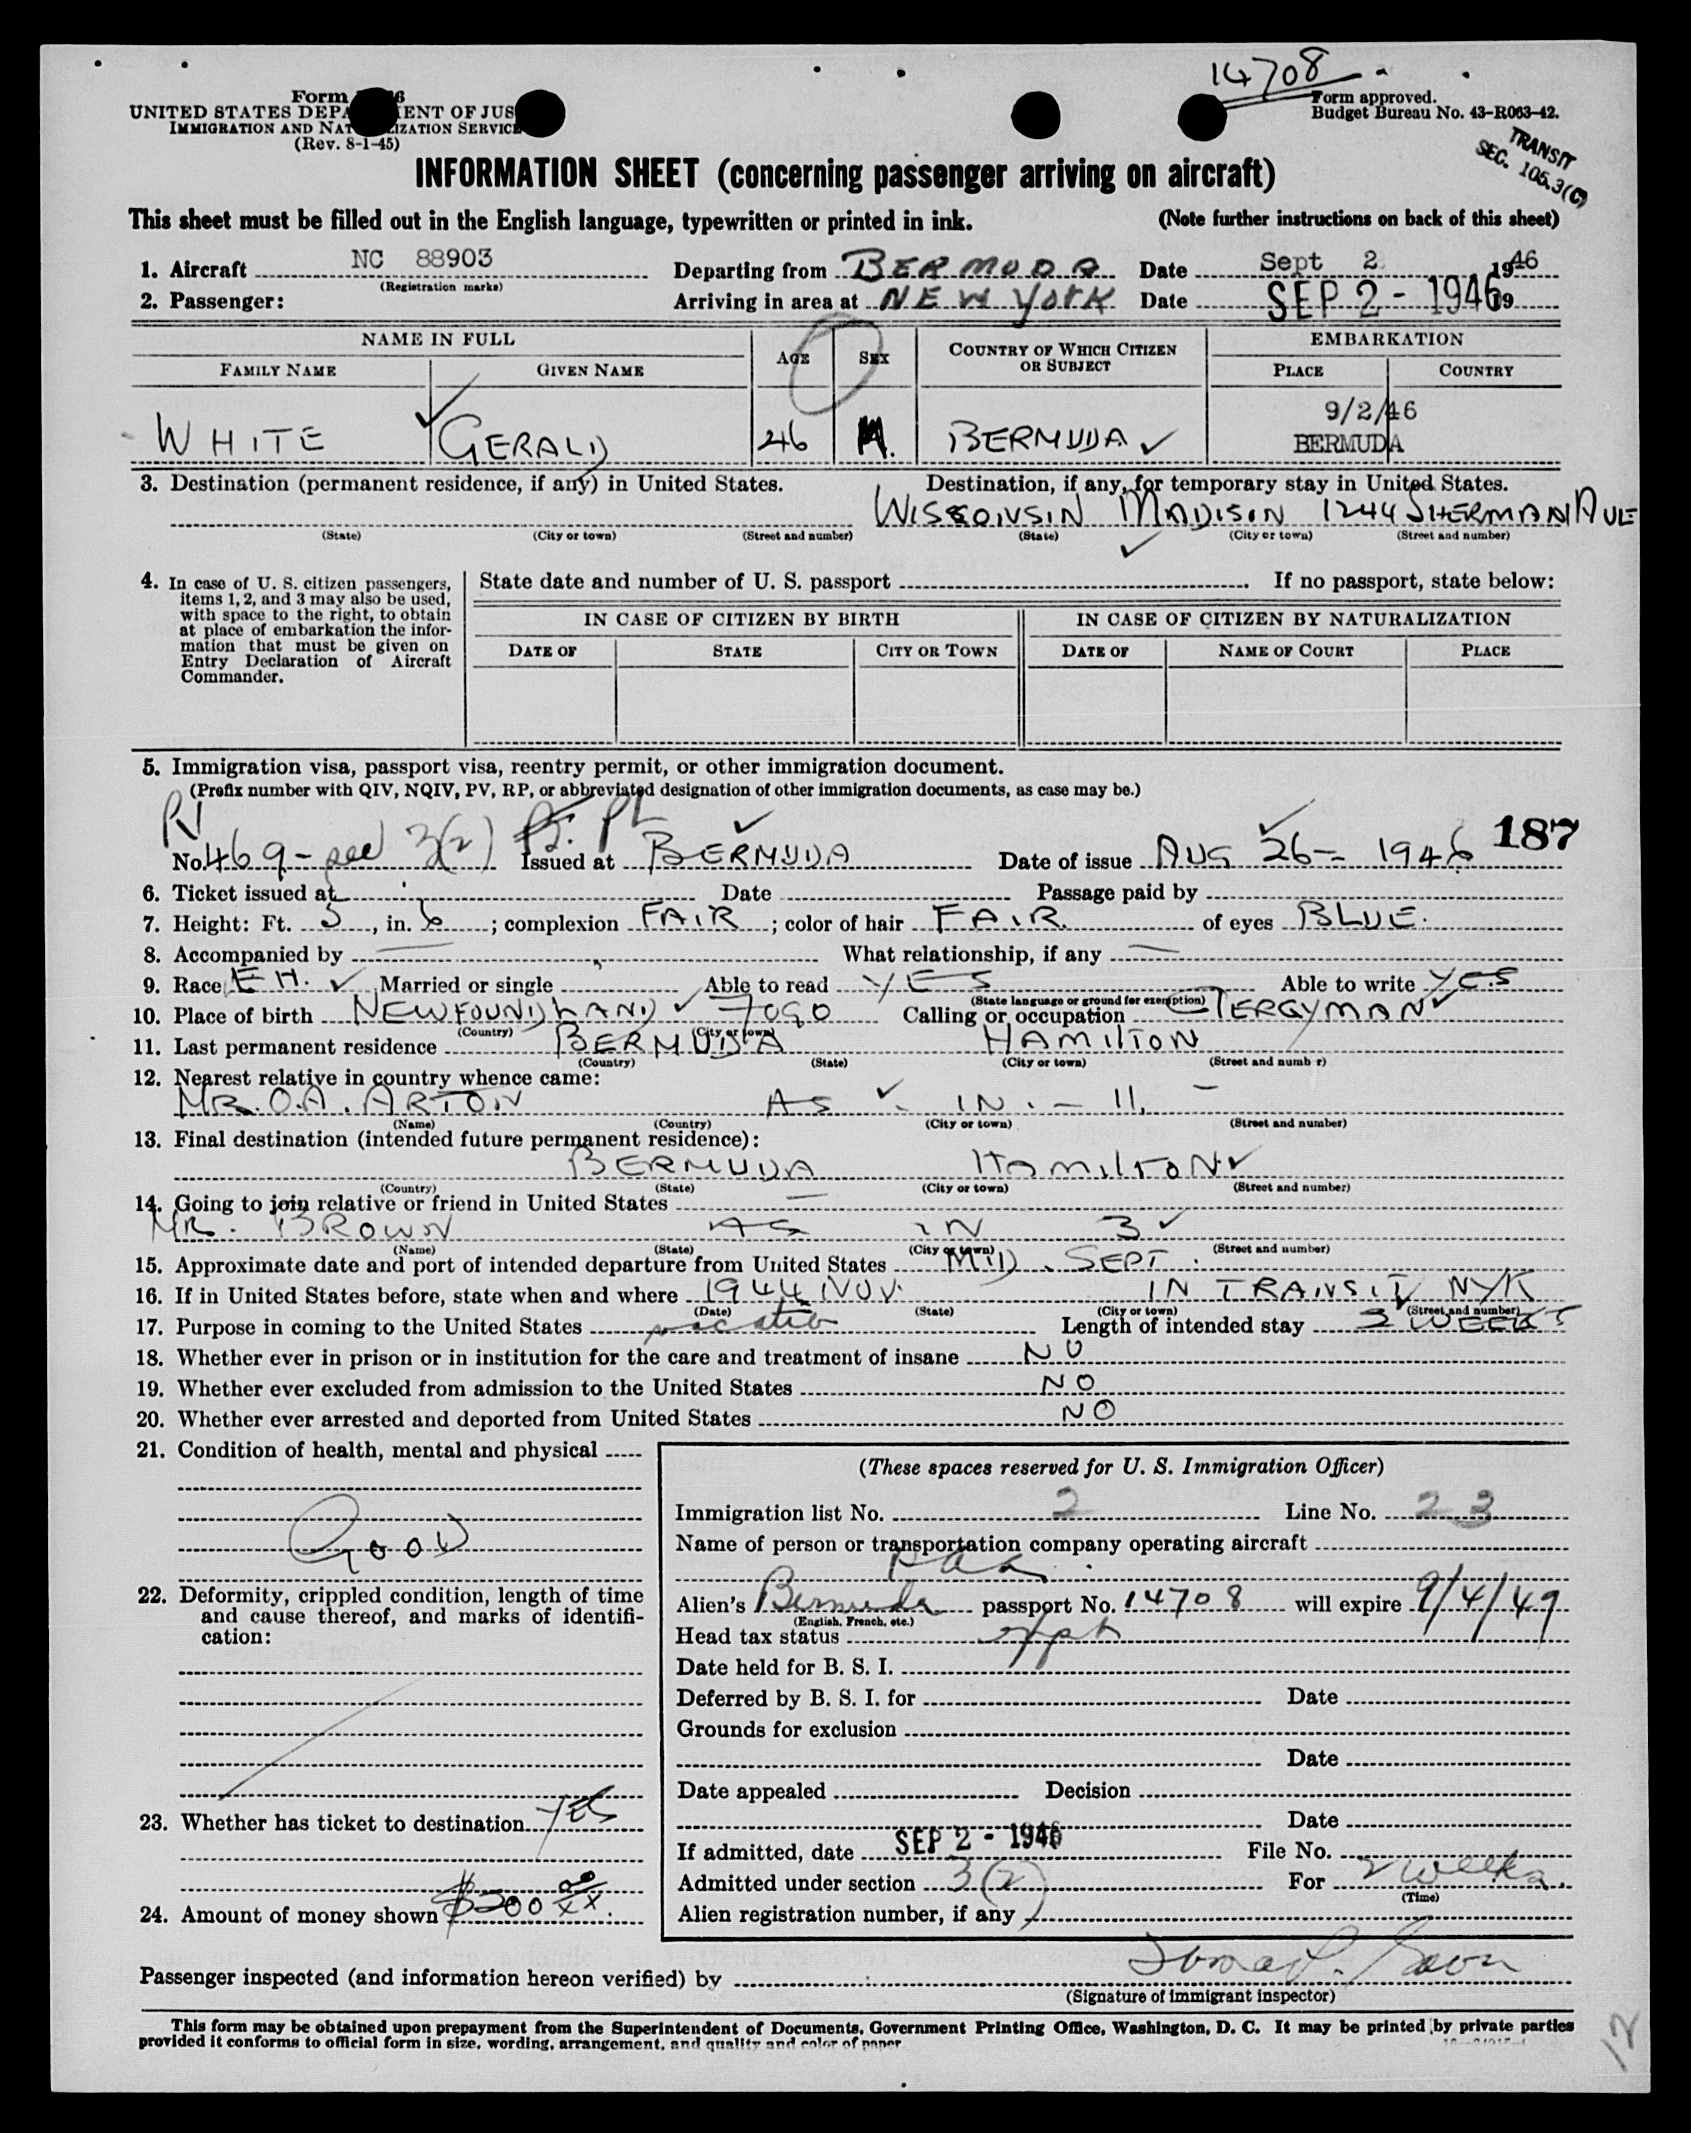 14708
Form
UNITED STATES DEPA ENT OF JUS
IMMIGRATION AND NAT IZATION SERVICE
(Rev. 8-1-45)
Form approved.
Budget Bureau No. 43-R063-42.
TRANSIT
SEC. 105.3(C)
INFORMATION SHEET (concerning passenger arriving on aircraft)
This sheet must be filled out in the English language, typewritten or printed in ink. (Note further instructions on back of this sheet)
1. Aircraft NC 88903 Departing from BERMUDA Date Sept 2 1946
(Registration marks)
2. Passenger: Arriving in area at NEW YORK Date SEP 2 - 1946 19
NAME IN FULL AGE SEX COUNTRY OF WHICH CITIZEN OR SUBJECT EMBARKATION
FAMILY NAME GIVEN NAME PLACE COUNTRY
9/2/46
WHITE GERALD 46 M. BERMUDA BERMUDA
3. Destination (permanent residence, if any) in United States. Destination, if any, for temporary stay in United States.
WISSCONSIN MADISON 1244 SHERMAN AVE
(State) (City or town) (Street and number) (State) (City or town) (Street and number)
4. In case of U. S. citizen passengers, items 1, 2, and 3 may also be used, with space to the right, to obtain at place of embarkation the information that must be given on Entry Declaration of Aircraft Commander.
State date and number of U. S. passport If no passport, state below:
IN CASE OF CITIZEN BY BIRTH IN CASE OF CITIZEN BY NATURALIZATION
DATE OF STATE CITY OR TOWN DATE OF NAME OF COURT PLACE
5. Immigration visa, passport visa, reentry permit, or other immigration document.
(Prefix number with QIV, NQIV, PV, RP, or abbreviated designation of other immigration documents, as case may be.)
No. 469 - 3(2) Issued at BERMUDA Date of issue AUG 26 - 1946 187
6. Ticket issued at Date Passage paid by
7. Height: Ft. 5, in. 6; complexion FAIR; color of hair FAIR. of eyes BLUE.
8. Accompanied by What relationship, if any
9. Race EH. Married or single Able to read YES Able to write YES
(State language or ground for exemption)
10. Place of birth NEWFOUNDLAND FOGO Calling or occupation CLERGYMAN
(Country) (City or town)
11. Last permanent residence BERMUDA HAMILTON
(Country) (State) (City or town) (Street and numb r)
12. Nearest relative in country whence came:
MR. O.A. ARTON AS - IN - 11. -
(Name) (Country) (City or town) (Street and number)
13. Final destination (intended future permanent residence):
BERMUDA HAMILTON
(Country) (State) (City or town) (Street and number)
14. Going to join relative or friend in United States
MR. BROWN AS IN 3
(Name) (State) (City or town) (Street and number)
15. Approximate date and port of intended departure from United States MID. SEPT.
16. If in United States before, state when and where 1944 NOV. IN TRANSIT NYK
(Date) (State) (City or town) (Street and number)
17. Purpose in coming to the United States vacation Length of intended stay 2 WEEKS
18. Whether ever in prison or in institution for the care and treatment of insane NO
19. Whether ever excluded from admission to the United States NO
20. Whether ever arrested and deported from United States NO
21. Condition of health, mental and physical
GOOD
22. Deformity, crippled condition, length of time and cause thereof, and marks of identification:
23. Whether has ticket to destination YES
24. Amount of money shown $200 00/xx.
(These spaces reserved for U. S. Immigration Officer)
Immigration list No. 2 Line No. 23
Name of person or transportation company operating aircraft
PAA
Alien's Bermuda passport No. 14708 will expire 9/4/49
(English, French, etc.)
Head tax status
Date held for B. S. I.
Deferred by B. S. I. for Date
Grounds for exclusion
Date
Date appealed Decision
Date
If admitted, date SEP 2 - 1946 File No.
Admitted under section 3(2) For 2 weeks.
(Time)
Alien registration number, if any
Passenger inspected (and information hereon verified) by
(Signature of immigrant inspector)
This form may be obtained upon prepayment from the Superintendent of Documents, Government Printing Office, Washington, D. C. It may be printed by private parties
provided it conforms to official form in size, wording, arrangement, and quality and color of paper
12